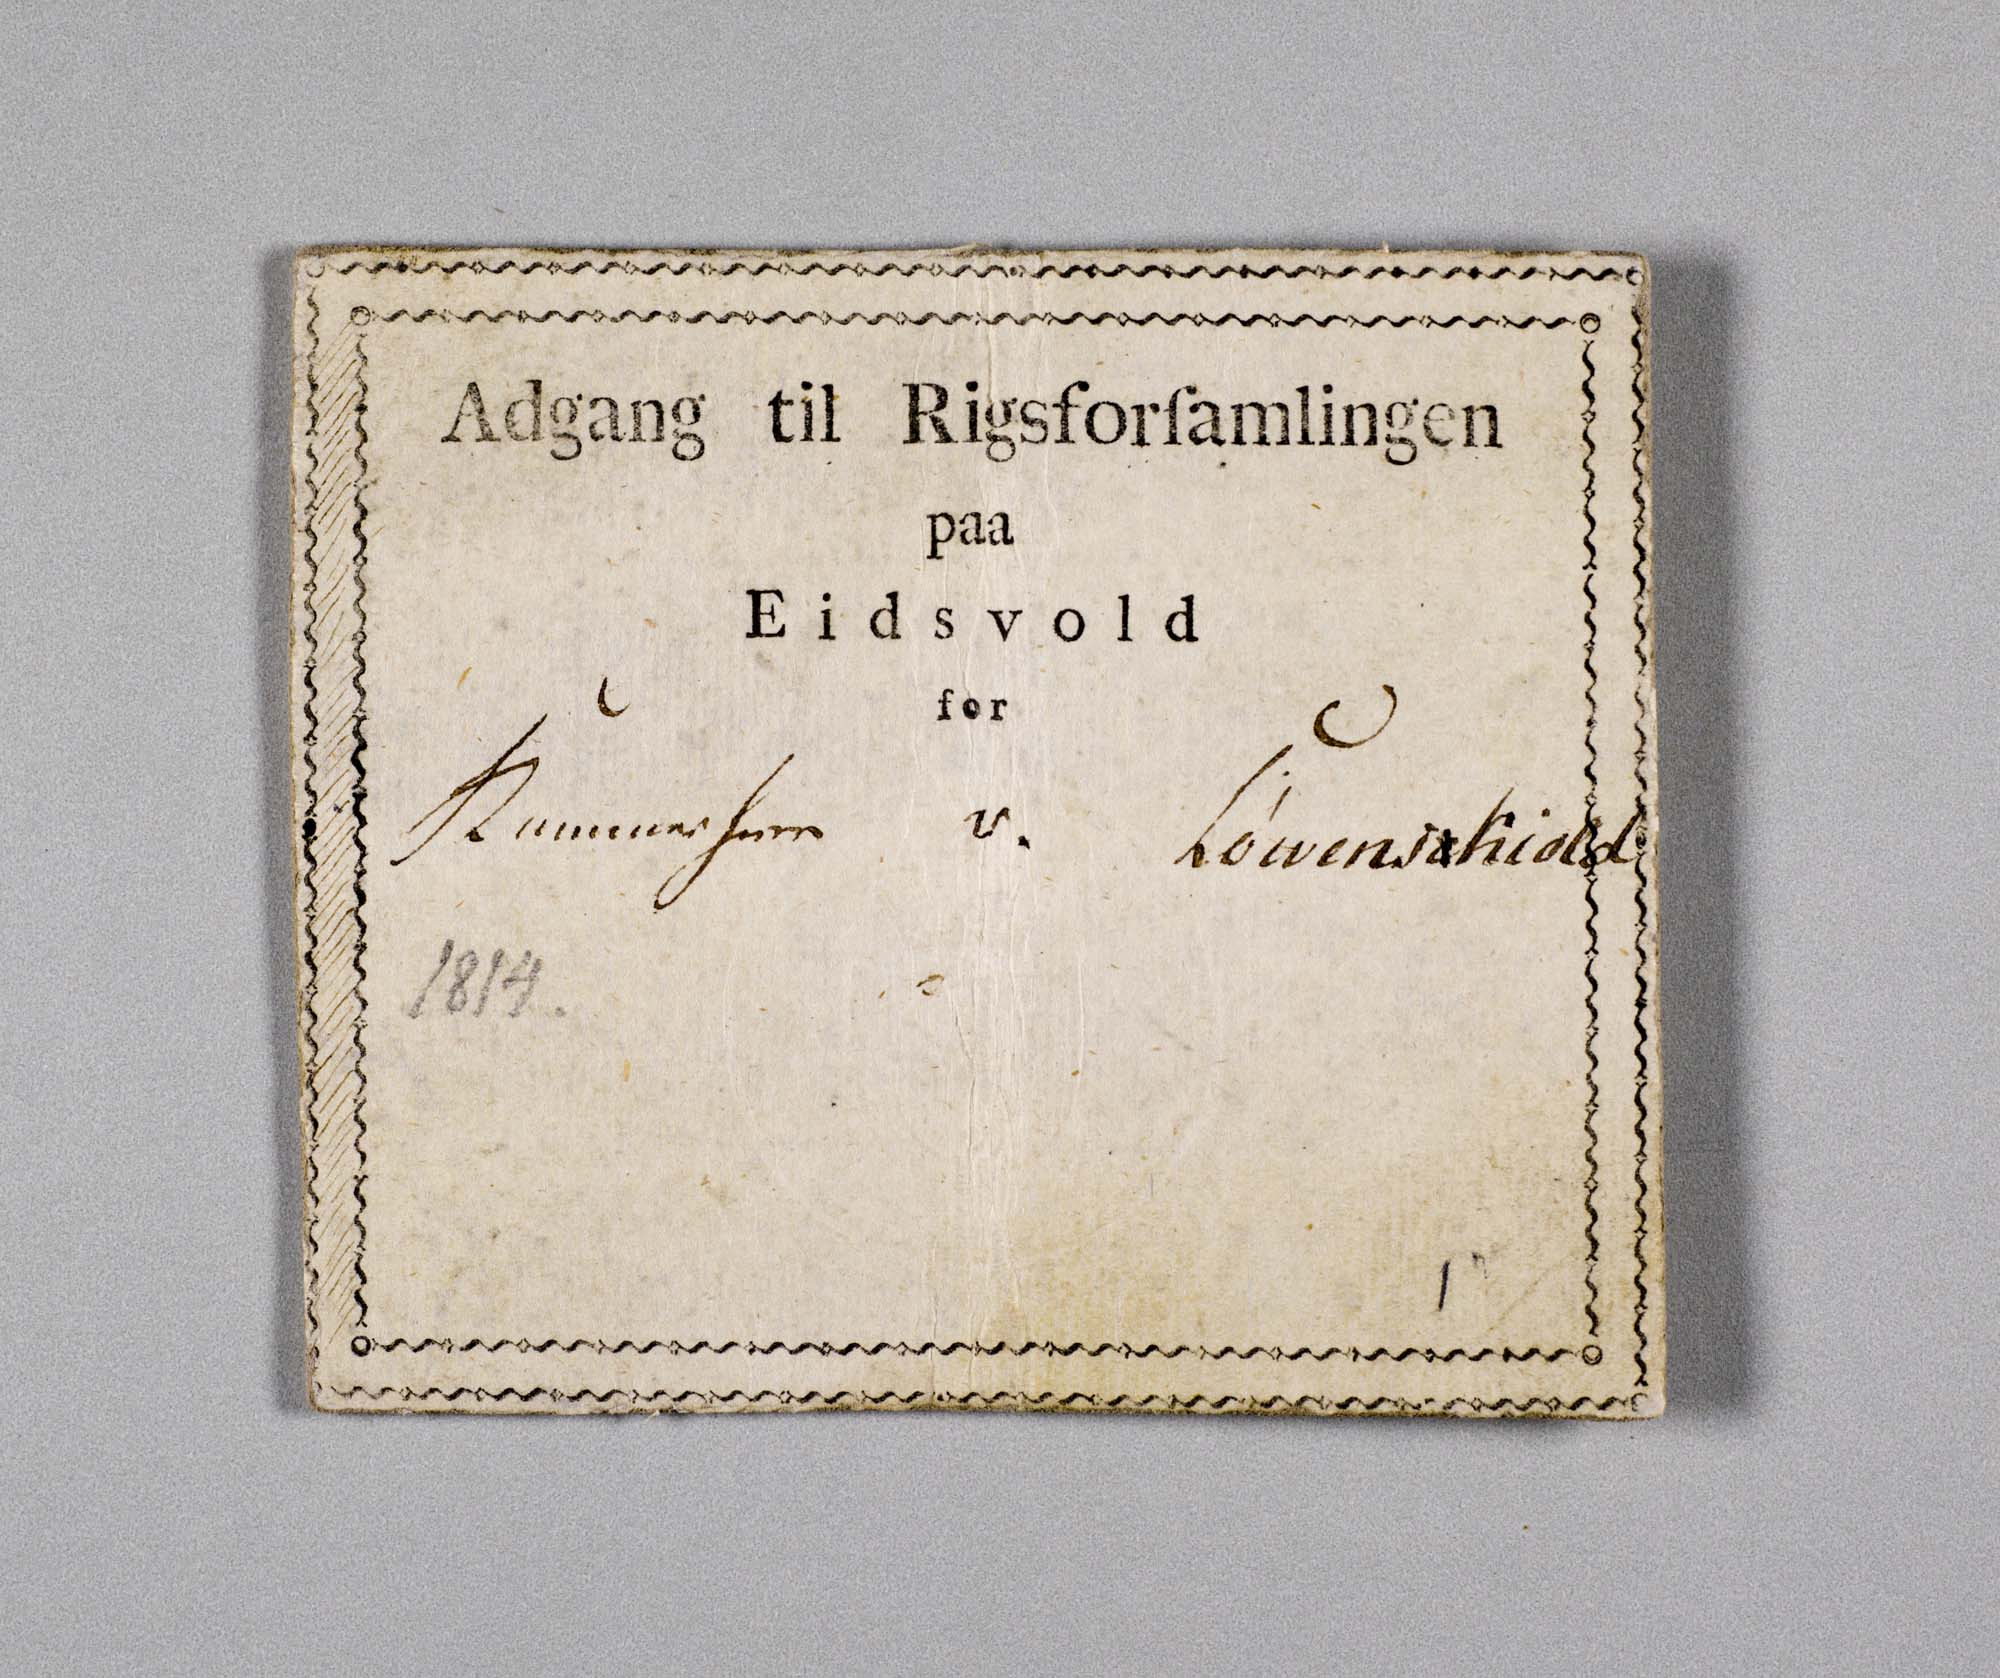 Adgang til Rigsforſamlingen
paa
Eidsvold
for
Kammerherr v. Löwenskiold
1814.